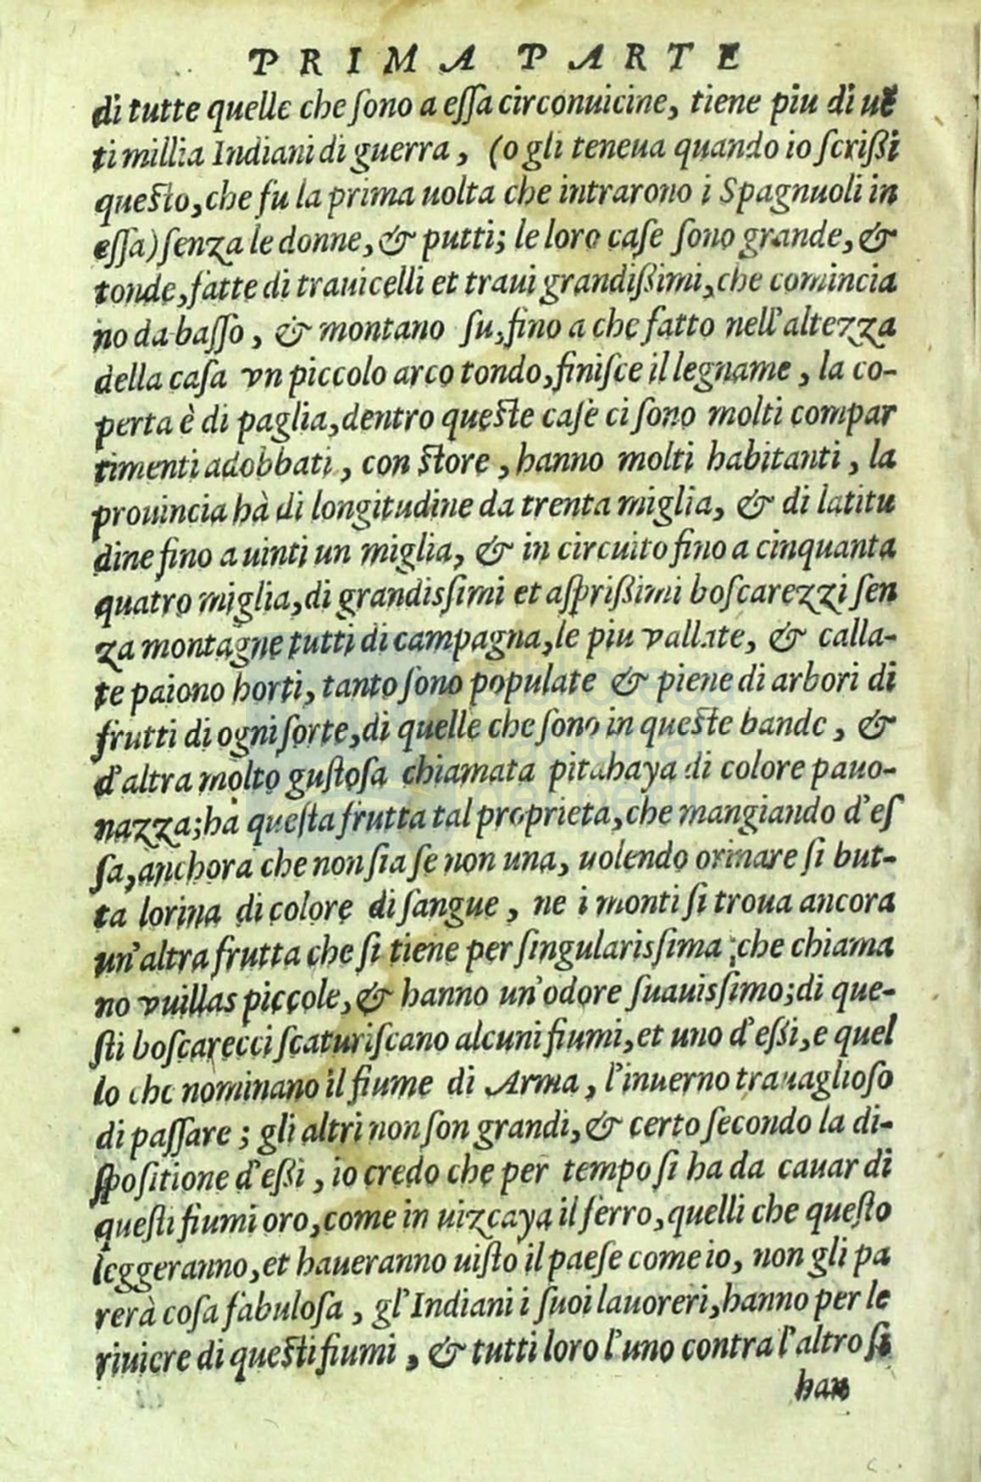 PRIMA PARTE
di tutte quelle che ſono a eſſa circonuicine, tiene piu di uẽ
ti millia Indiani di guerra, (o gli teneua quando io ſcriſſi
queſto, che fu la prima uolta che intrarono i Spagnuoli in
eſſa) ſenza le donne, & putti; le loro caſe ſono grande, &
tonde, fatte di trauicelli et traui grandiſſimi, che comincia
no da baſſo, & montano ſu, fino a che fatto nell'altezza
della caſa vn piccolo arco tondo, finiſce il legname, la co-
perta è di paglia, dentro queſte caſe ci ſono molti compar
timenti adobbati, con ſtore, hanno molti habitanti, la
prouincia hà di longitudine da trenta miglia, & di latitu
dine fino a uinti un miglia, & in circuito fino a cinquanta
quatro miglia, di grandisſimi et aſpriſſimi boſcarezzi ſen
za montagne tutti di campagna, le piu vallate, & calla-
te paiono horti, tanto ſono populate & piene di arbori di
frutti di ogni ſorte, di quelle che ſono in queſte bande, &
d'altra molto guſtoſa chiamata pitahaya di colore pauo-
nazza; hà queſta frutta tal proprieta, che mangiando d'eſ
ſa, anchora che non ſia ſe non una, uolendo orinare ſi but-
ta lorina di colore di ſangue, ne i monti ſi troua ancora
un'altra frutta che ſi tiene per ſingularisſima, che chiama
no vuillas piccole, & hanno un'odore ſuauisſimo; di que-
ſti boſcarecci ſcaturiſcano alcuni fiumi, et uno d'eſſi, e quel
lo che nominano il fiume di Arma, l'inuerno trauaglioſo
di paſſare; gli altri non ſon grandi, & certo ſecondo la di-
ſpoſitione d'eſſi, io credo che per tempo ſi ha da cauar di
queſti fiumi oro, come in uizcaya il ferro, quelli che queſto
leggeranno, et haueranno uiſto il paeſe come io, non gli pa
rerà coſa fabuloſa, gl'Indiani i ſuoi lauoreri, hanno per le
riuiere di queſti fiumi, & tutti loro l'uno contra l'altro ſi
han